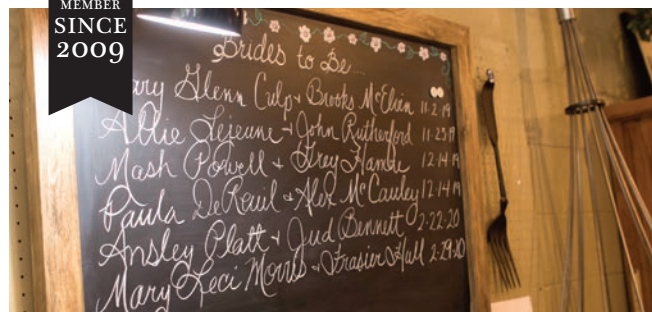 MEMBER
SINCE
2009
Brides to Be...
ary Glenn Culp + Brooks McElvin 11-2-19
Allie Lejeune + John Rutherford 11-23-19
Mash Powell + Grey 12-14-19
Paula DeRouil + Alex McCauley 12-14-19
Ansley Platt + Jud Bennett 2-22-20
Mary Leci Morris + Frasier Hall 2-29-20